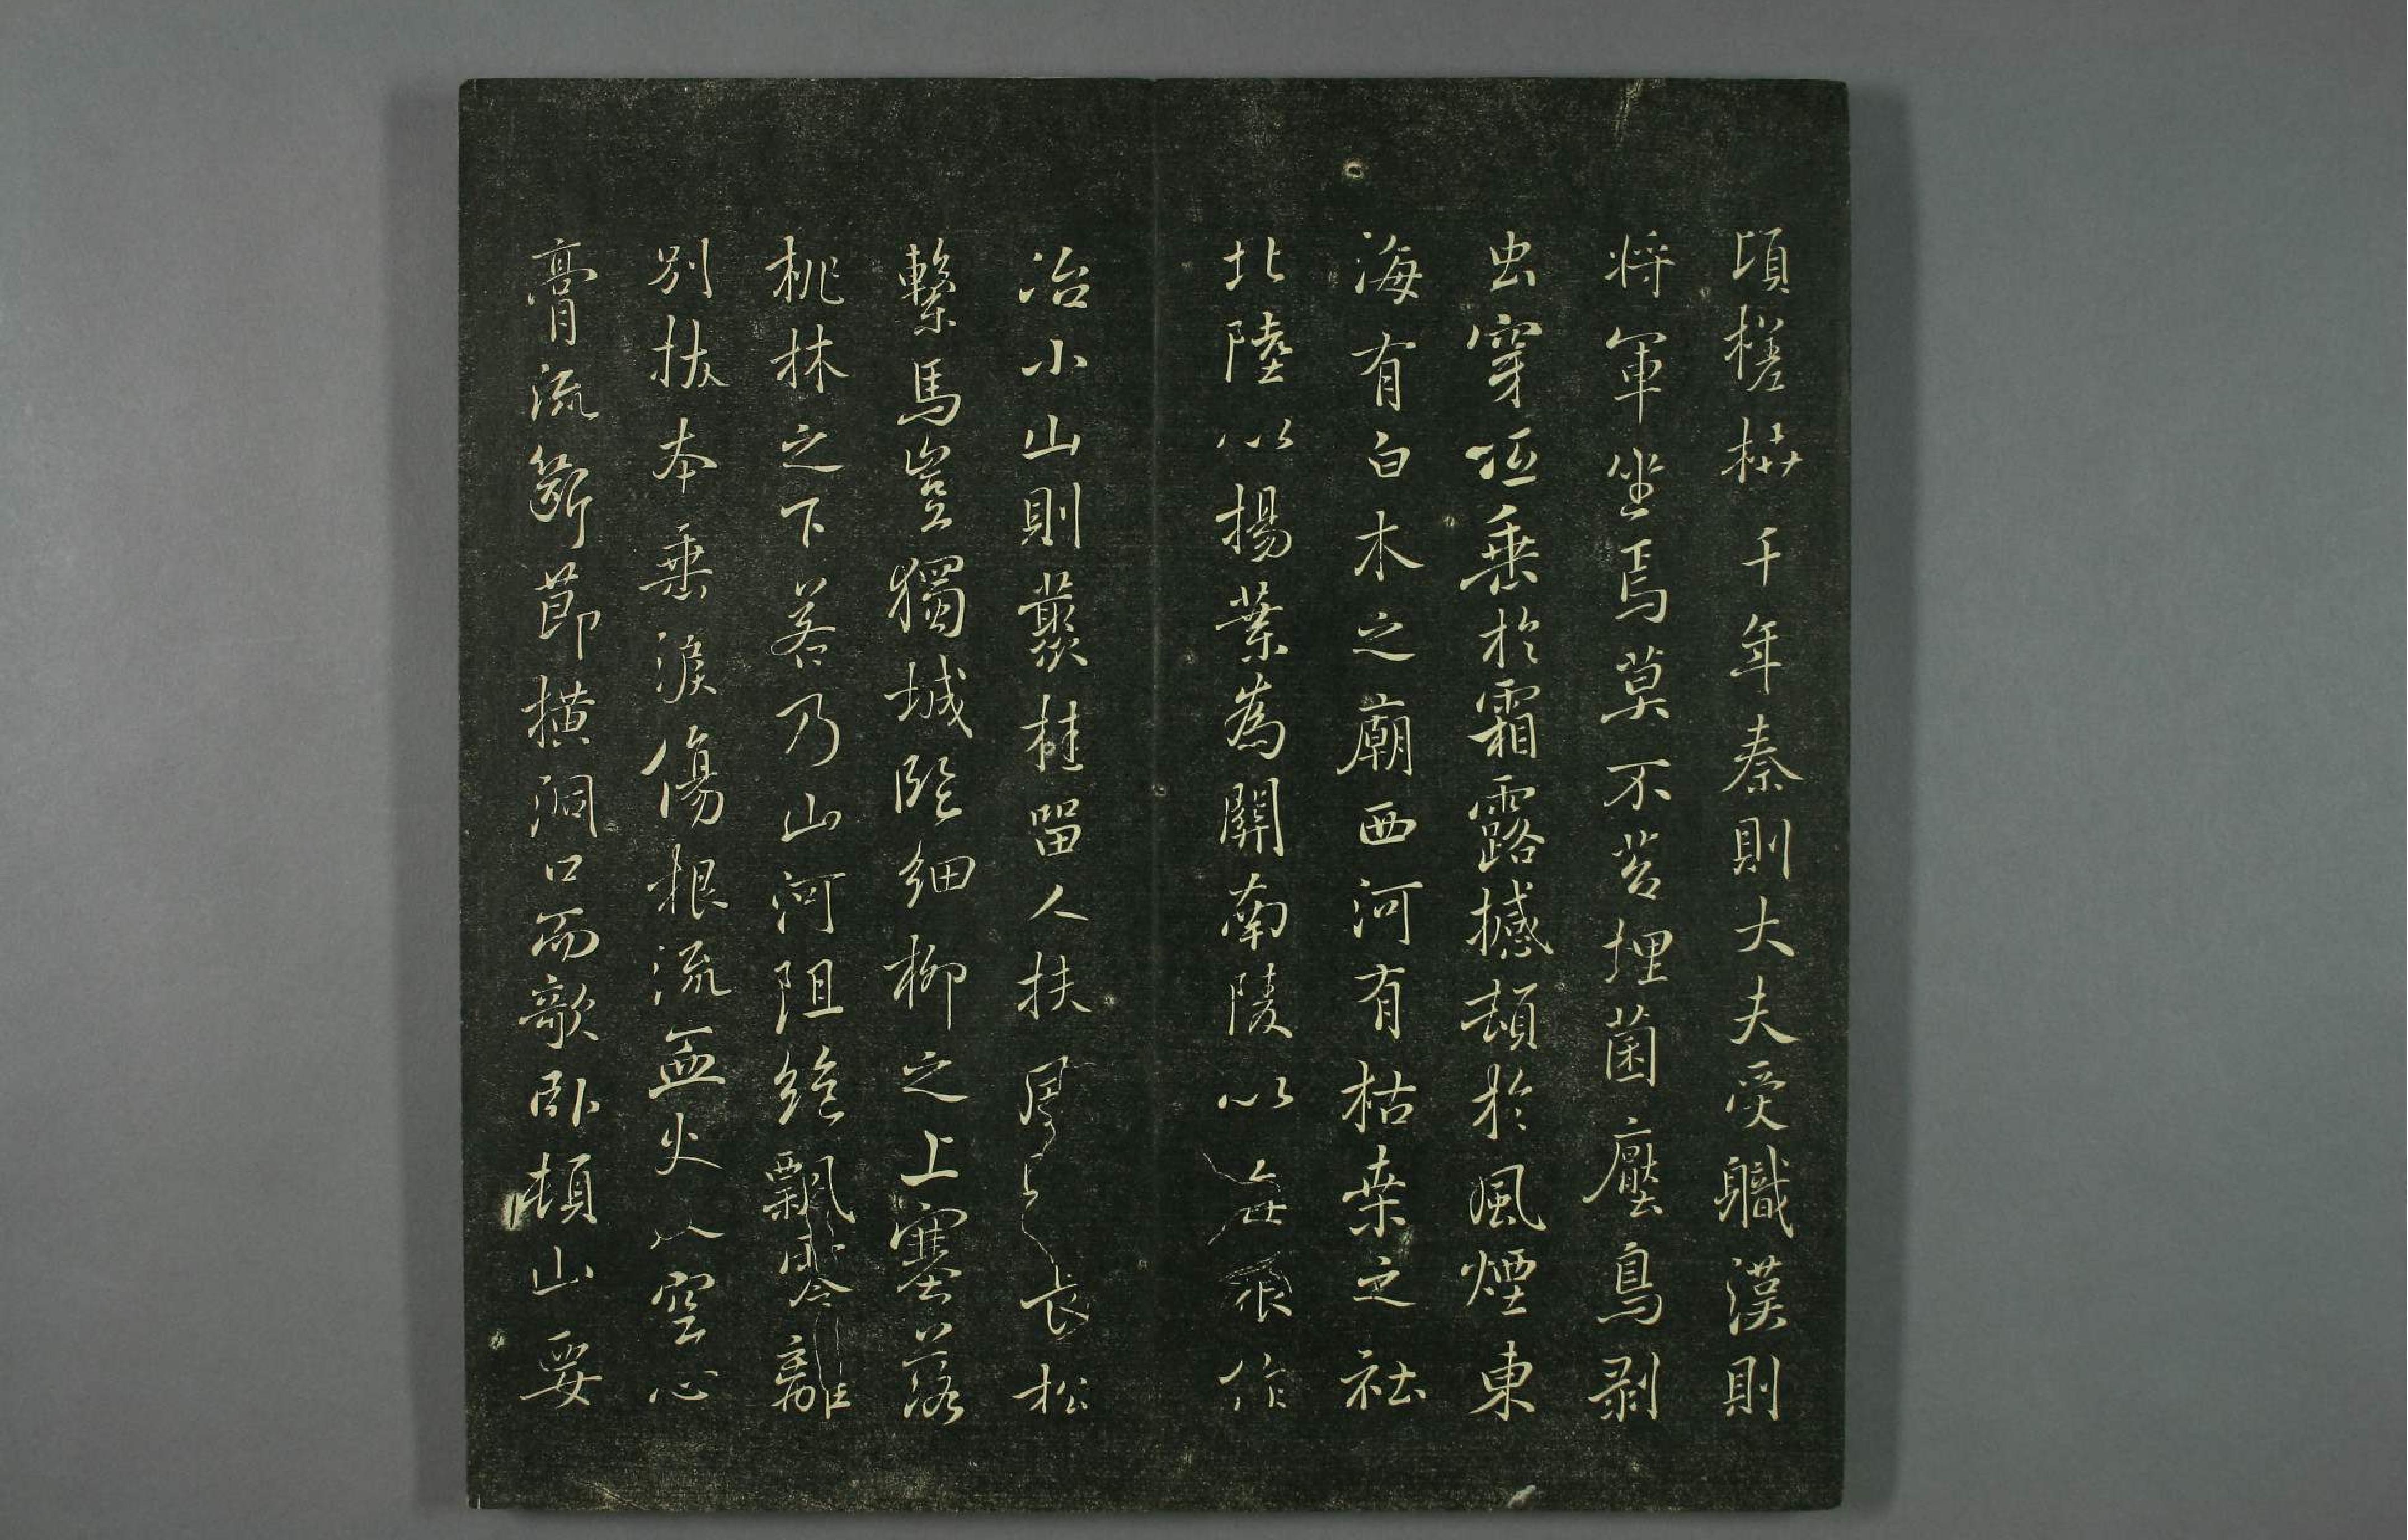 頃槎枿千年秦則大夫受職漢則
將軍坐焉莫不苔埋菌壓鳥剥
虫穿低垂於霜露撼頓於風煙東
海有白木之廟西河有枯桑之社
北陸以楊葉為關南陵以梅根作
冶小山則叢桂留人扶風長松
繫馬豈獨城臨細柳之上塞落
桃林之下若乃山河阻絕飄零離
別拔本垂淚傷根流血火入空心
膏流斷節橫洞口而欹臥頓山要